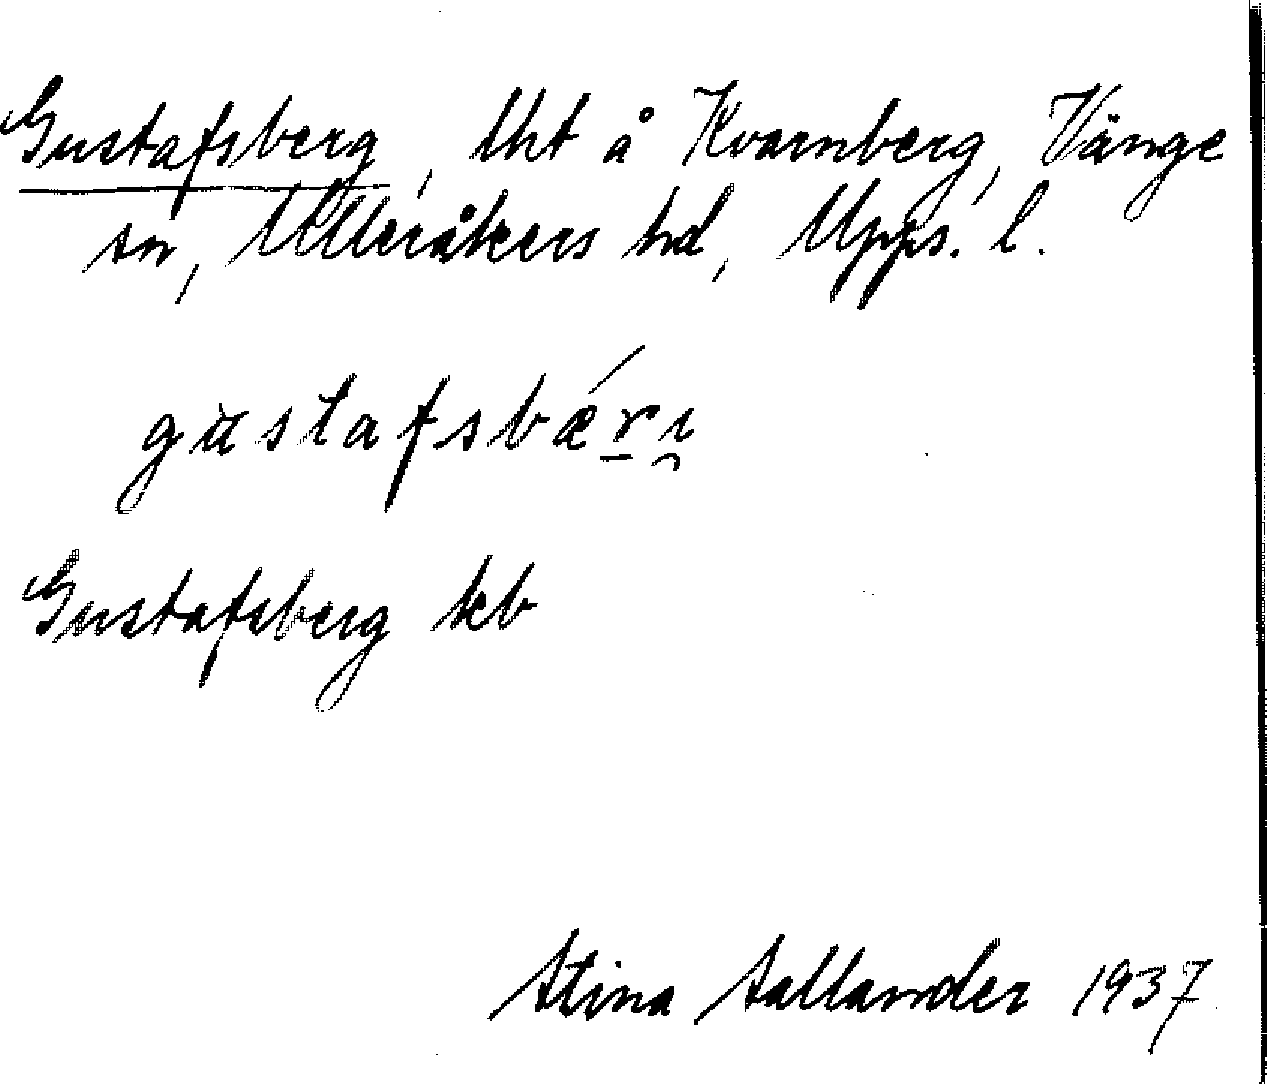 Gustafsberg, lht å Kvarnberg, Vänge
sn, Ulleråkers hd, Upps. l.
gustafsbǽr̠ı̯
Gustafsberg kb
Stina Sallander 1937